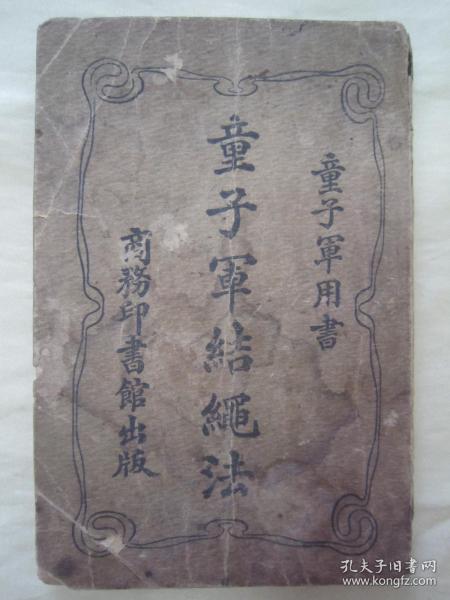 童子軍用書
童子軍結繩法
商務印書館出版
孔夫子旧书网
www.kongfz.com